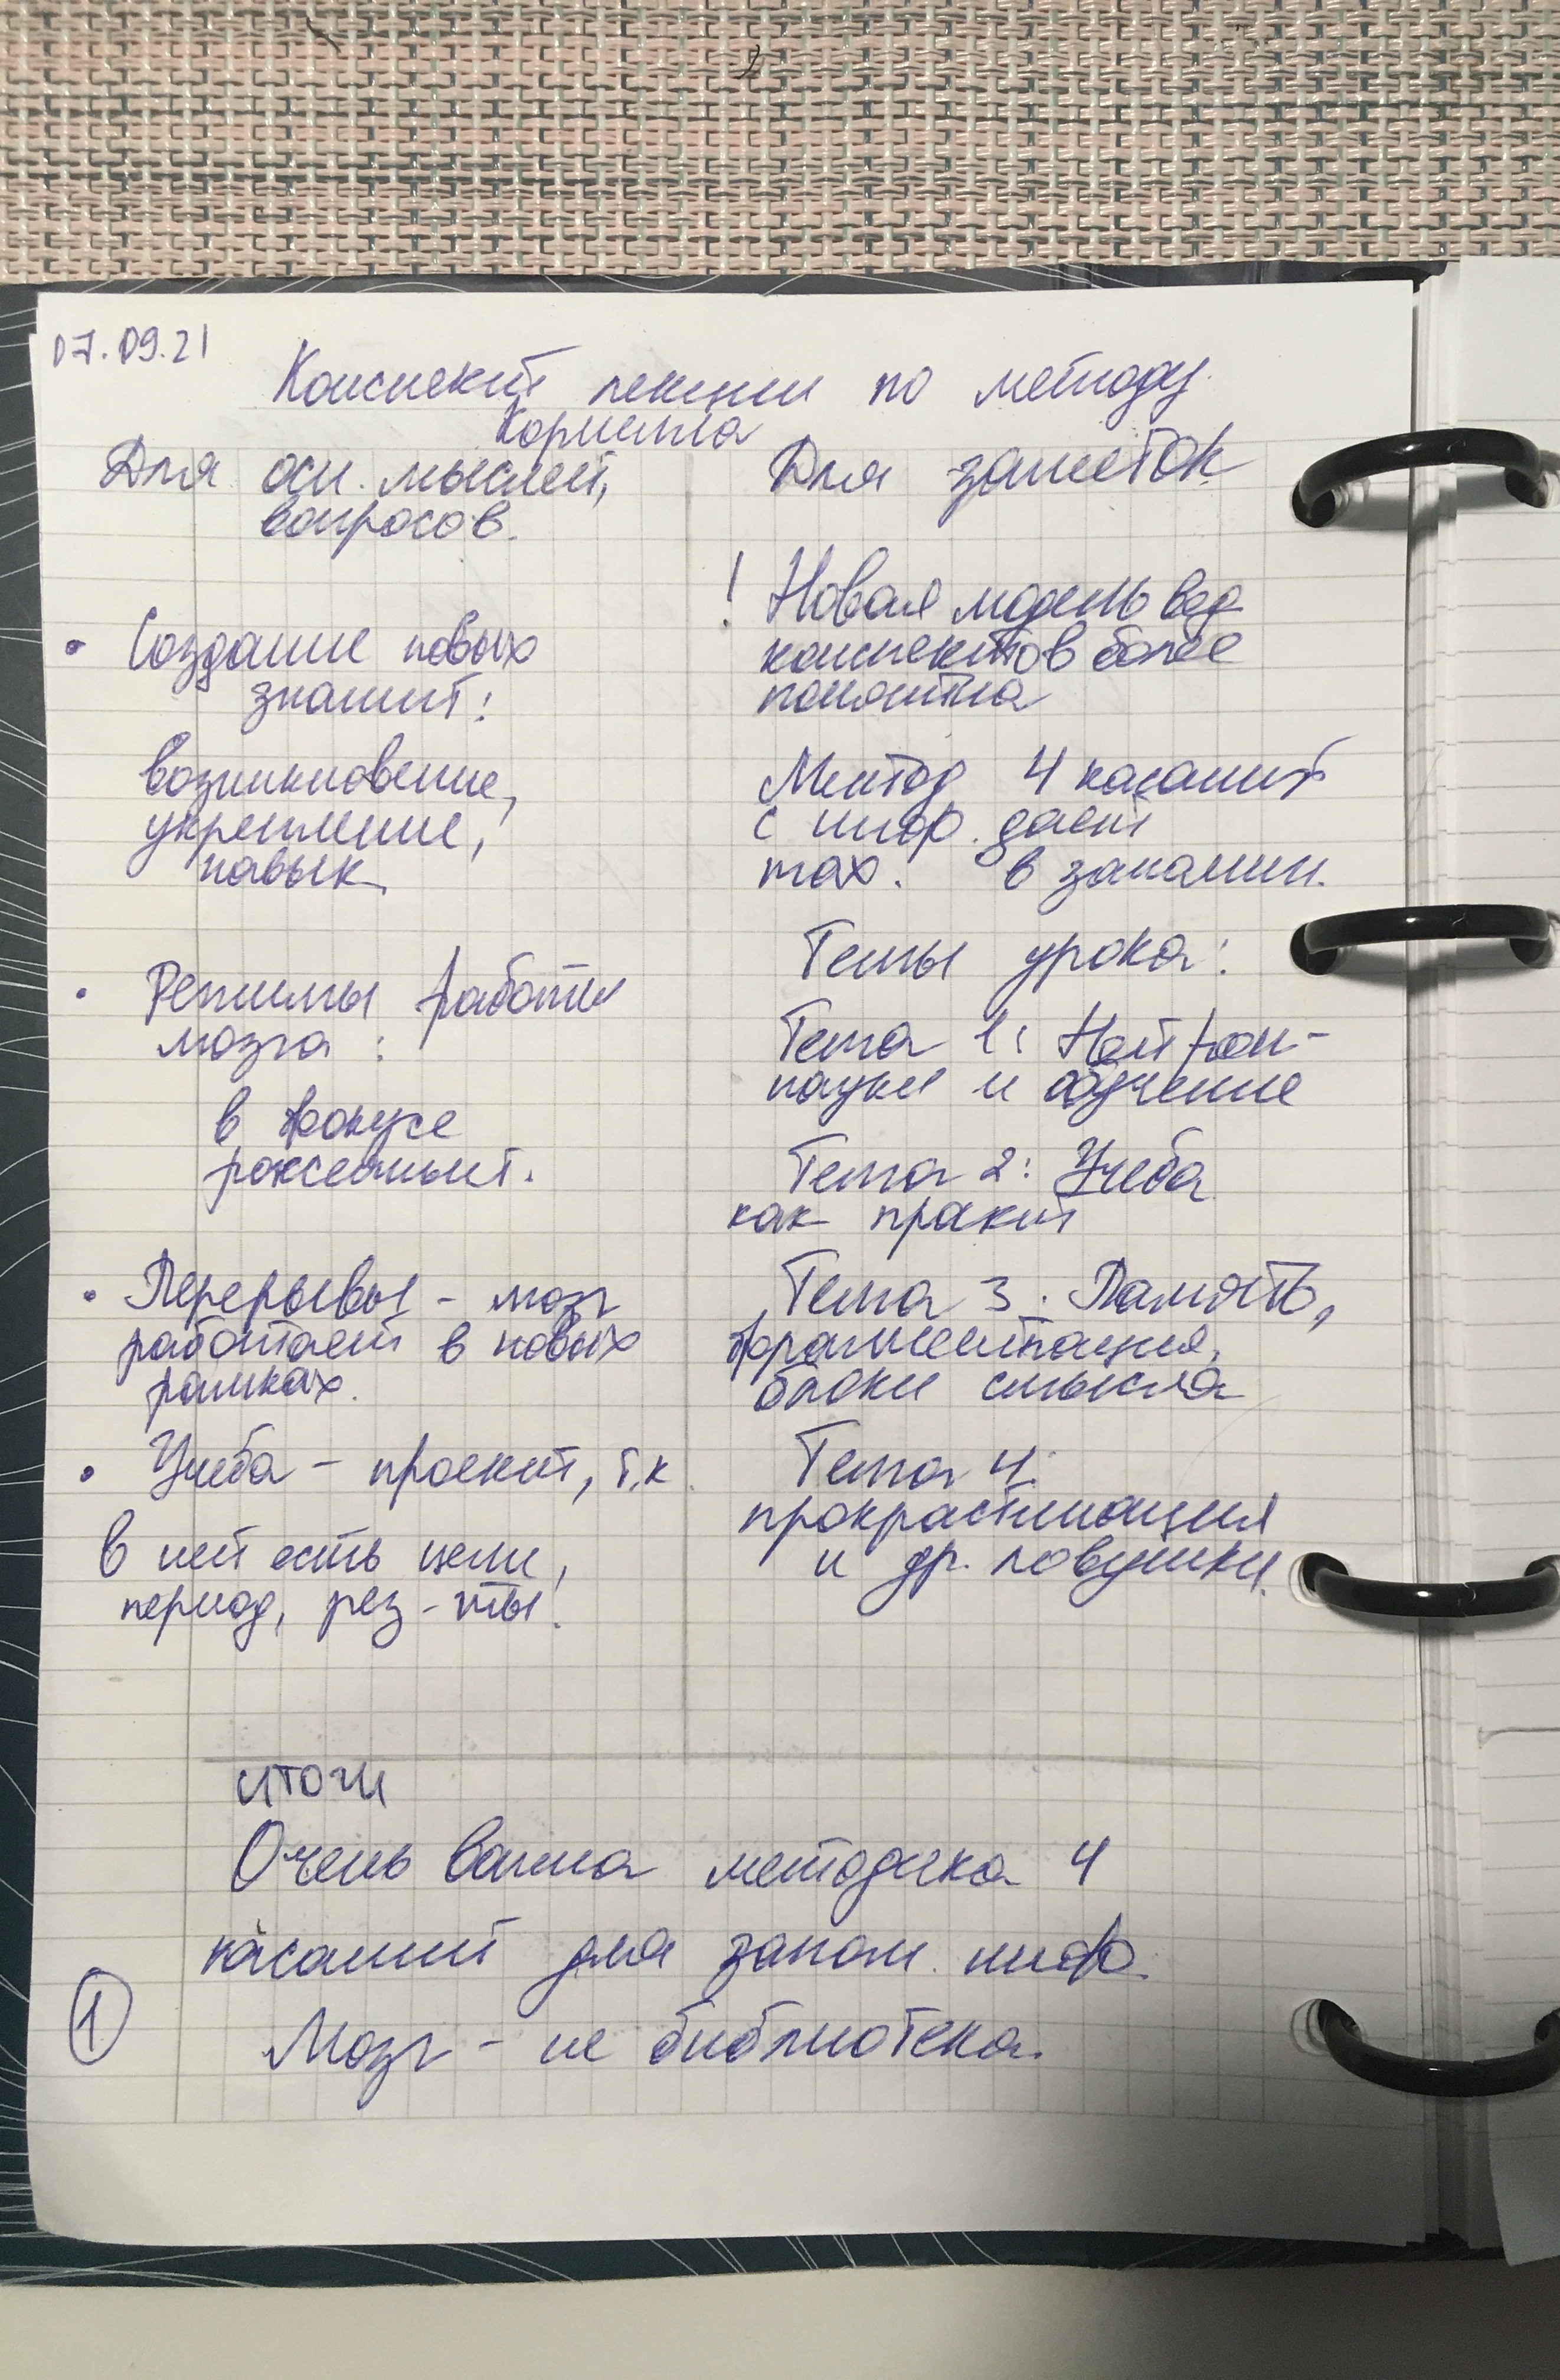 07.09.21
Конспект лекции по методу
Корнелла
Для осн. мыслей,
вопросов.
• Создание новых
знаний:
возникновение,
укрепление,
навык.
• Режимы работы
мозга:
в фокусе
рассеянный.
• Перерывы - мозг
работает в новых
рамках.
• Учеба - проект, т.к.
в ней есть цели,
период, рез-ты!
Для заметок
! Новая модель вед
конспектов более
понятна
Метод 4 касаний
с инф. дает
max. в запомин.
Темы урока:
Тема 1: Нейрон-
науки и обучение
Тема 2: Учеба
как проект
Тема 3: Память,
фрагментация,
блоки смысла
Тема 4:
прокрастинация
и др. ловушки.
итоги
Очень важна методика 4
касаний для запом. инф.
Мозг - не библиотека.
1